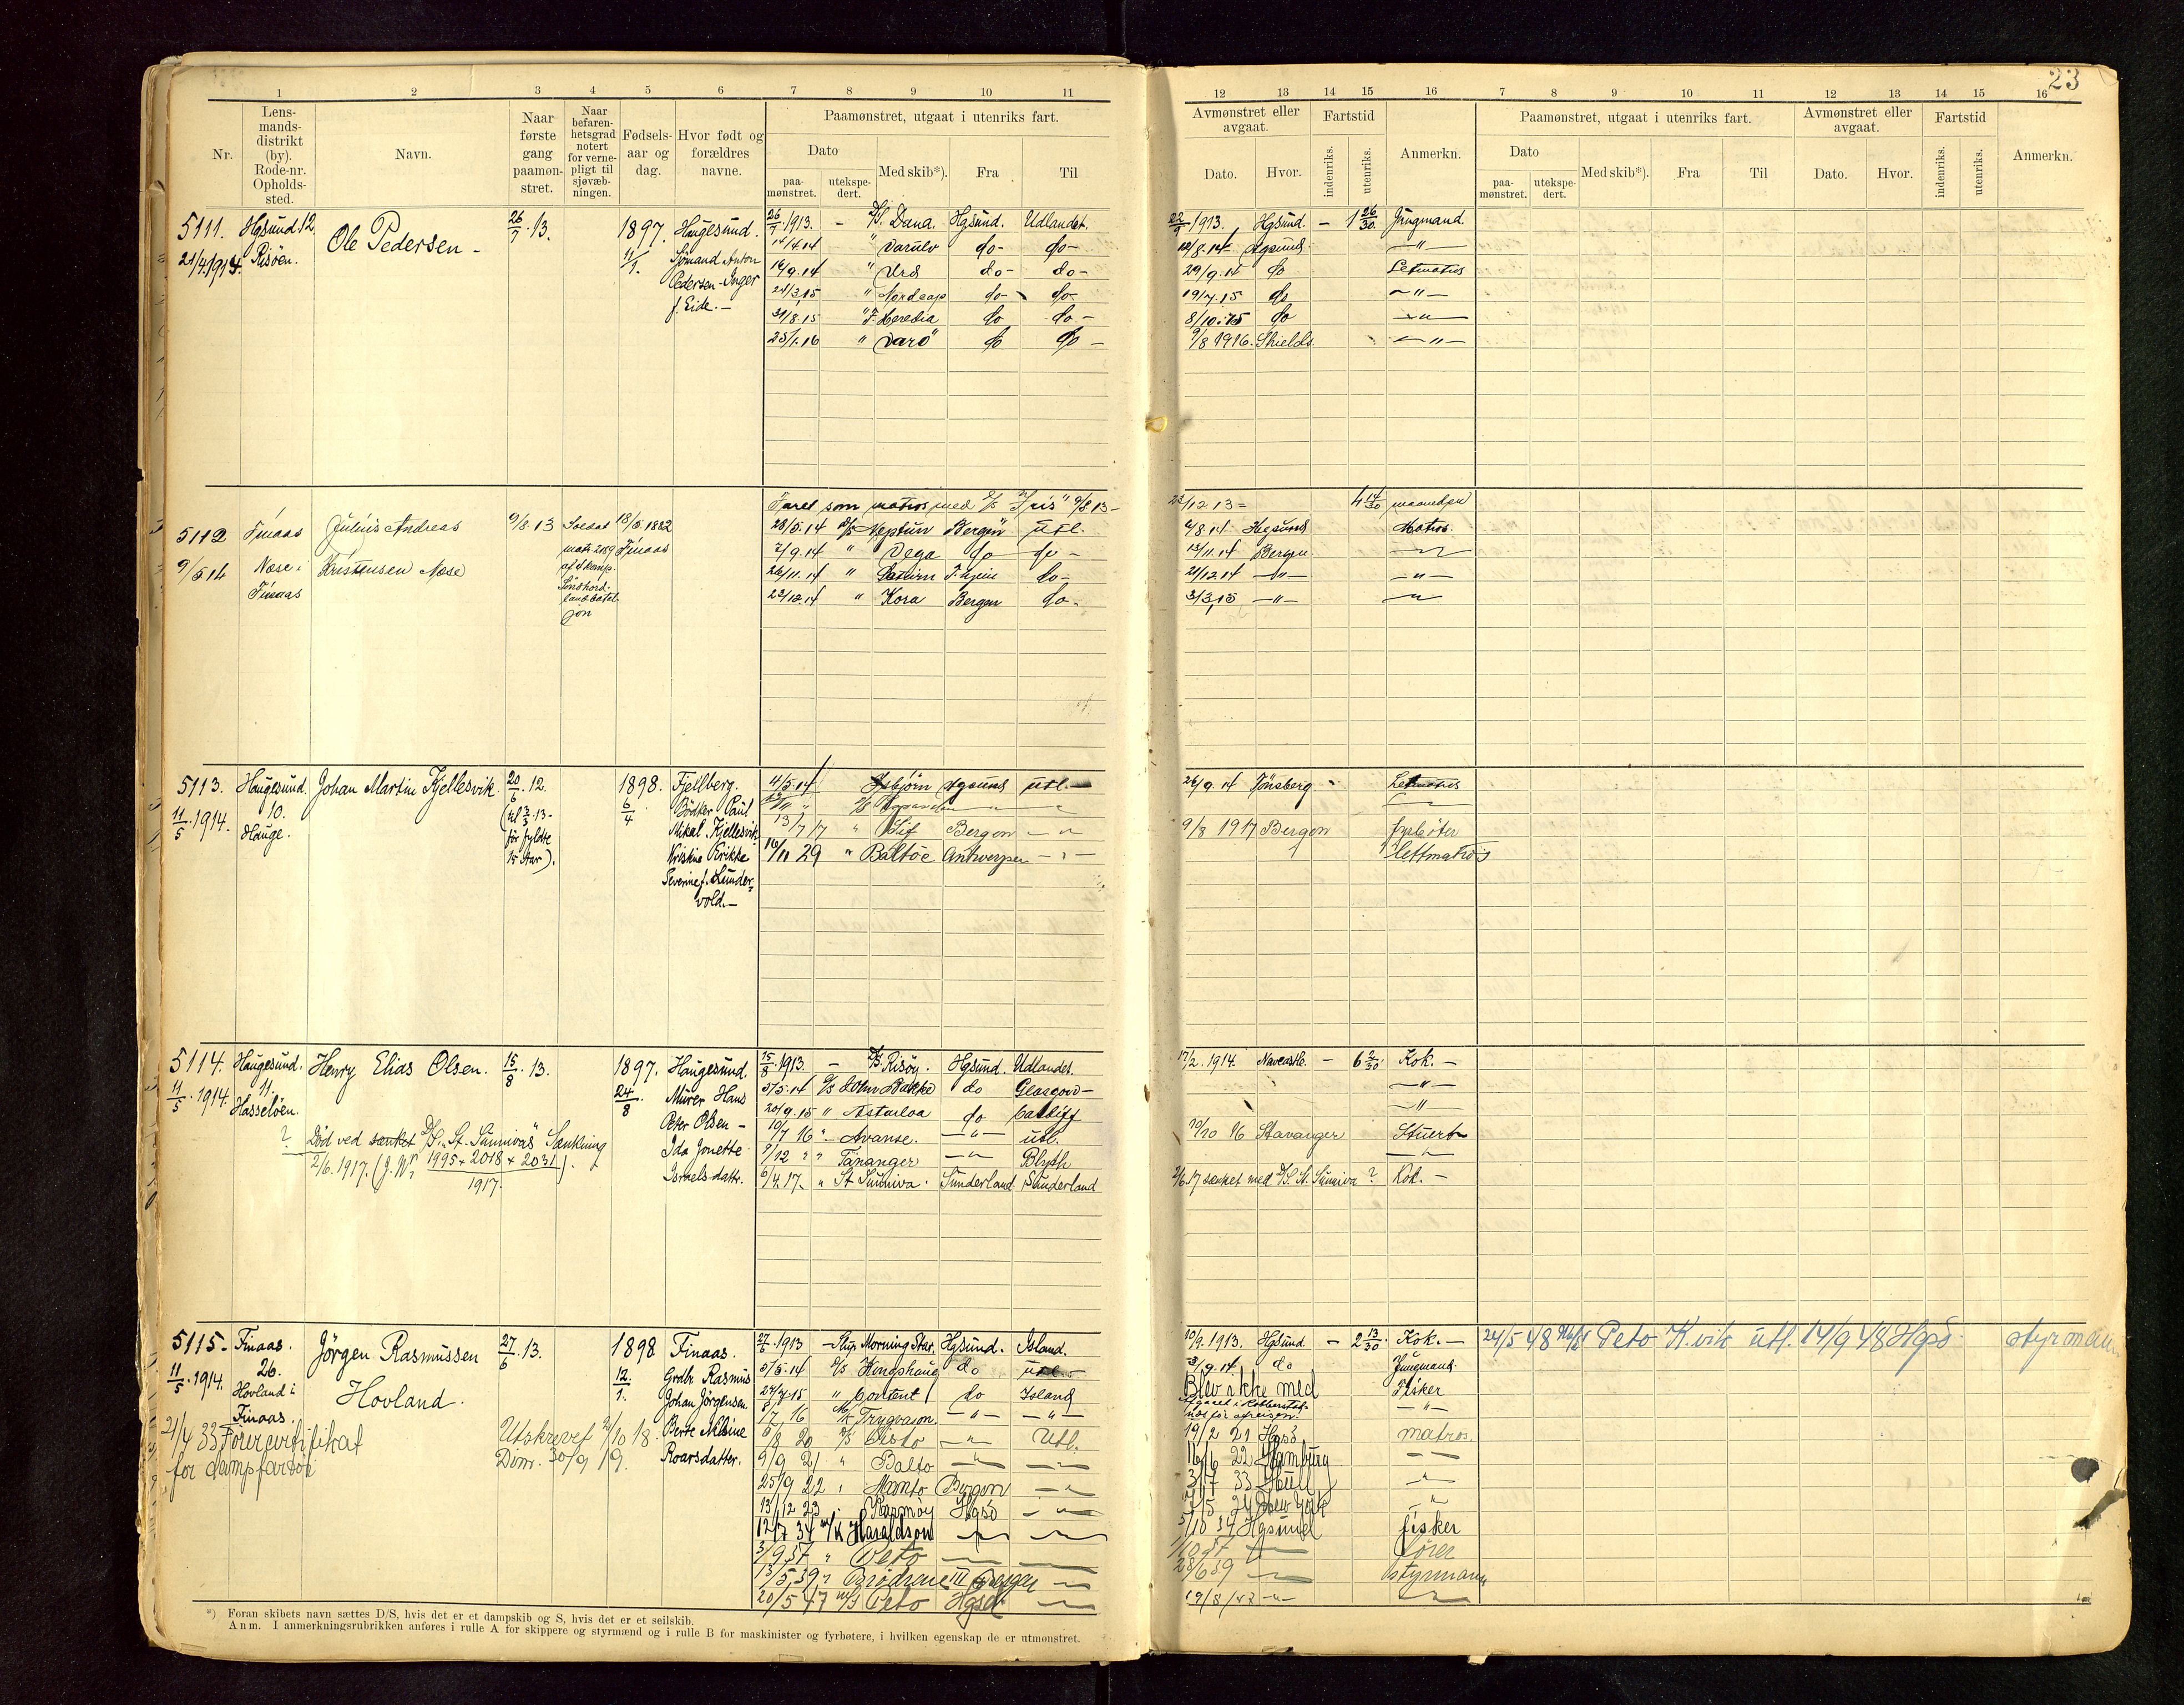 23
1 2 3 4 5 6 7 8 9 10 11
12 13 14 15 16 7 8 9 10 11 12 13 14 15 16
Nr. Lensmandsdistrikt (by). Rode-nr. Opholdssted. Navn. Naar første gang paamønstret. Naar befarenhetsgrad notert for vernepligt til sjøvæbningen. Fødselsaar og dag. Hvor født og forældres navne. Paamønstret, utgaat i utenriks fart.
Dato paamønstret. utekspedert. Med skib*). Fra Til
Avmønstret eller avgaat. Dato. Hvor. Fartstid indenriks. utenriks. Anmerkn.
Paamønstret, utgaat i utenriks fart. Dato paamønstret. utekspedert. Med skib*). Fra Til Avmønstret eller avgaat. Dato. Hvor. Fartstid indenriks. utenriks. Anmerkn.
5111. Hgsund. 12. Ole Pedersen - 26/7 13. 1897. Haugesund. 26/7 1913. - D/S. Dana. Hgsund. Udlandet. 22/9 1913. Hgsund. - 1 26/30 Jungmand.
21/4 1914. Risöen. 11/1. Sjømand Anton 14/4.14 " Varulv do- do- 10/8.14 Hgsund -"-
Pedersen - Inger 16/9.14 " Urd do- do- 29/9.14 do Letmatros
f. Eide. - 24/3.15 " Nordcap do- do- 19/7.15 do -"-
31/8.15 " F. Heredia do do- 8/10.15 do -"-
25/1.16 " Varo" do do- 9/8 1916. Shields. -"-
Faret som matros med D/S "Iris" 9/8.13- 23/12.13 = 4 14/30 maaneder
5112 Finaas Julius Andreas 9/8.13 Soldat 18/5.1882 28/5.14 D/S Neptun Bergen utl. 4/8.14 Hgsund Matros.
9/5 14 Næse i Kristensen Næse matr 2189 Finaas 2/9.14 " Vega do do- 13/11.14 Bergen -"-
Finaas af 4 komp. 26/11.14 " Saturn T.hjem do- 21/12.14 -"- -"-
Söndhordlandbataljon 23/12.14 " Kora Bergen do- 3/3.15 -"- -"-
5113. Haugesund. Johan Martin Kjellesvik. 20/6 12. 1898. Fjellberg. 4/5.14 Isbjörn Hgsund utl. 26/9.14 Tönsberg - Letmatros
11/5 1914. 10. Hauge. (til 2/3 13- för fyldte 15 aar). 6/4 Bödker Paul
Mikal Kjellesvik 13/7 17 " Lif Bergen -"- 9/8 1917 Bergen fyrböter
Kristine Erikke 16/11 29 " Baltöe Antwerpen -"- lettmatros
Severine f. Lundervold. -
5114. Haugesund. Henry Elias Olsen. 15/8 13. 1897. Haugesund. 15/8 1913. - D/S. Risöy. Hgsund. Udlandet. 17/2. 1914. Newcastle. - 6 2/30 Kok. -
11/5 1914. 11. Hasselöen. 24/8 Murer Hans 5/5.14 D/S John Bakke do Glasgow- -"-
Peter Olsen - 20/9.15 " Astarloa do Cardiff -"-
? Död ved sænket D/S. "St. Sunniva's" Sænkning 10/7 16 " Avanse. -"- utl. 20/10 16 Stavanger Stuert
2/6. 1917. (J. Nr 1995 + 2018 + 2031/1917). Ida Jonette 9/12 " " Tananger -"- Blyth -"-
Israels-dattr. 6/4.17. " St Sunniva. Sunderland. Sunderland 2/6.17 sænket med D/S. St. Sunniva ? Kok. -
5115. Finaas. Jörgen Rasmussen Hovland. 27/6 13. 1898 Finaas. 27/6 1913 - Slup Morning Star. Hgsund. Island. 10/9. 1913. Hgsund. - 2 13/30 Kok. - 24/5 48 Peto K.vik utl. 14/9 48 Hgsd styrmann
11/5 1914. 26. Hovland i Finaas. 12/1. Grdbr Rasmus 5/5.14 D/S Kongshaug do utl. 3/9.14 do Jungmand.
Johan Jörgensen 24/7.15 " Content do Island Blev ikke med Fisker
Berte Maline 8/7 16 M/K Trygvason. -"- -"- -"-
Roarsdatter. 6/8 20 D/S Oisto -"- Utl. 19/2 21 Hgsd matros.
21/4 33 Förercertifikat for dampfartöi Utskrevet 2/10 18. Dim. 30/9 19. 9/9 21 " Balto -"- -"- 16/6 22 Hamburg -"-
25/9 22 " Manto Bergen -"- 3/7 33 Hull -"-
13/12 23 " Karmöy Hgsd -"- 7/5 24 New York -"-
12/7 34 M/K Haraldson -"- -"- 5/10 34 Hgsund fisker
3/9 37 " Peto -"- -"- 1/10 37 -"- förer
13/5 39 " Brödrene III Bergen -"- 28/6 39 -"- styrmann
20/5 47 M/S Peto Hgsd. -"- 19/8/47 -"- -"-
*) Foran skibets navn sættes D/S, hvis det er et dampskib og S, hvis det er et seilskib.
Anm. I anmerkningsrubrikken anføres i rulle A for skippere og styrmænd og i rulle B for maskinister og fyrbøtere, i hvilken egenskap de er utmønstret.